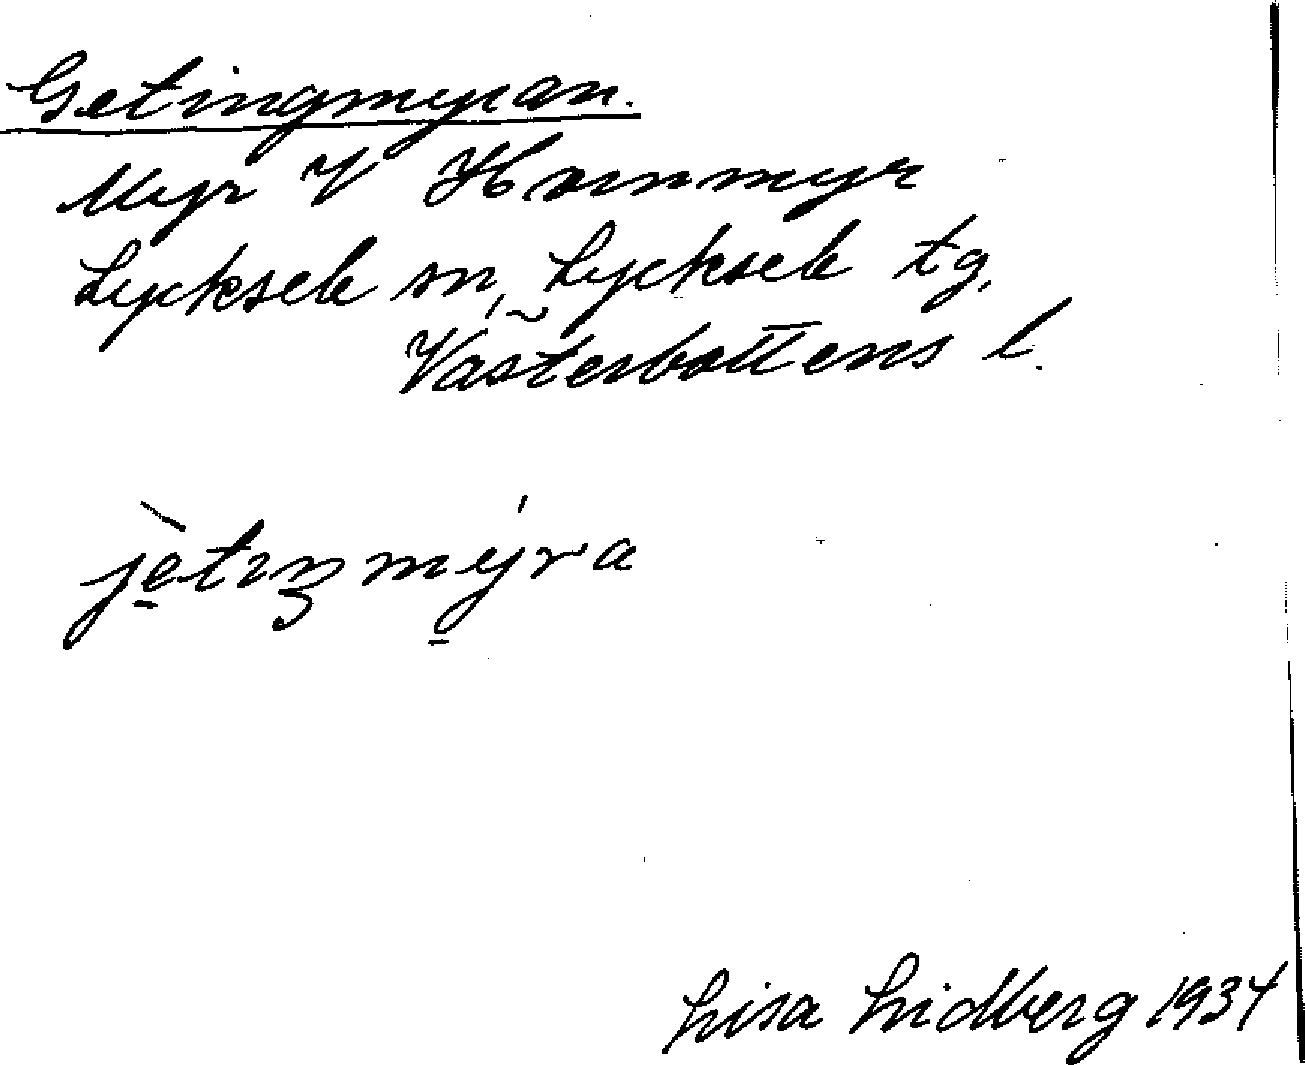 Getingmyran.
Myr V Hornmyr
Lycksele sn, Lycksele tg,
Västerbottens l.
jètıŋmýra
Lisa Lidberg 1934